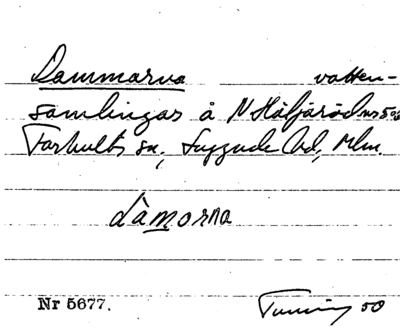 Dammarna vatten-
samlingar å N Häljaröd nr 5
Farhults sn, Luggude hd, Mlm.
dåmorna
Nr 5677. 50